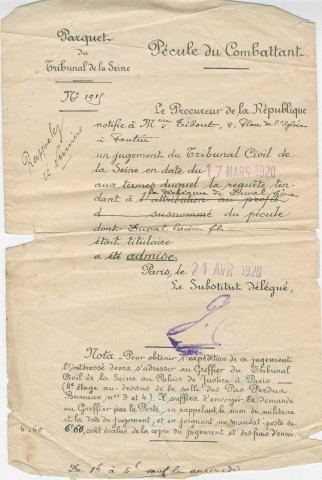 Parquet
du
Tribunal de la Seine
Pécule du Combattant
N° 1915
Rappeler
ce numéro
Le Procureur de la République
notifie à Mme Tribout, 8, Place de l'Eglise
à Pantin
un jugement du Tribunal Civil de
la Seine en date du 17 MARS 1920
aux termes duquel la requête ten-
dant à l'attribution au profit
d susnommé du pécule
dont Duval était
était titulaire
a été admise
Paris, le 21 AVR 1920
Le Substitut Délégué,
Nota - Pour obtenir l'expédition de ce jugement
l'intéressé devra s'adresser au Greffier du Tribunal
Civil de la Seine au Palais de Justice à Paris
(4e étage au-dessus de la salle des Pas Perdus
Bureaux nos 3 et 4). Il suffira d'envoyer la demande
au Greffier par la Poste, en rappelant le nom du militaire
et la date du jugement, et en joignant un mandat-poste de
6.60 6f60, coût évalué de la copie du jugement et des frais d'envoi.
De 1h à 4h sauf le samedi